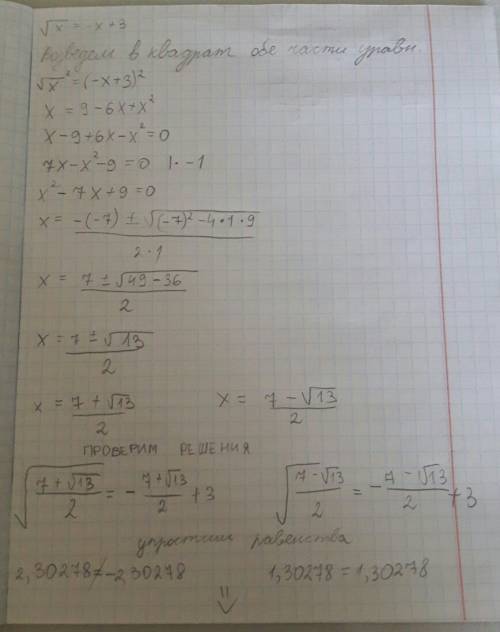 √x = -x+3
Возведем в квадрат обе части уравн.
√x² = (-x+3)²
x = 9-6x+x²
x-9+6x-x²=0
7x-x²-9=0 |· -1
x²-7x+9=0
x = (-(-7) ± √((-7)²-4·1·9))/(2·1)
x = (7±√(49-36))/2
x = (7±√13)/2
x = (7+√13)/2 x = (7-√13)/2
ПРОВЕРИМ РЕШЕНИЯ
√((7+√13)/2) = -(7+√13)/2 +3 √((7-√13)/2) = -(7-√13)/2 +3
упростим равенства
2,30278≠-2,30278 1,30278=1,30278
⇓